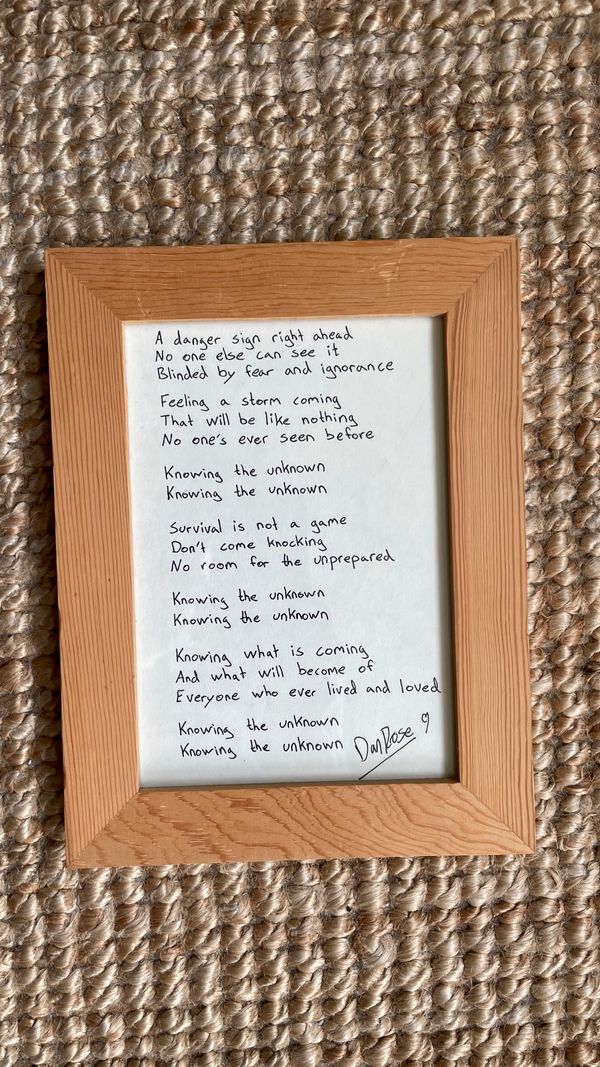 A danger sign right ahead
No one else can see it
Blinded by fear and ignorance
Feeling a storm coming
That will be like nothing
No one's ever seen before
Knowing the unknown
Knowing the unknown
Survival is not a game
Don't come knocking
No room for the unprepared
Knowing the unknown
Knowing the unknown
Knowing what is coming
And what will become of
Everyone who ever lived and loved
Knowing the unknown
Knowing the unknown
Dan Rose